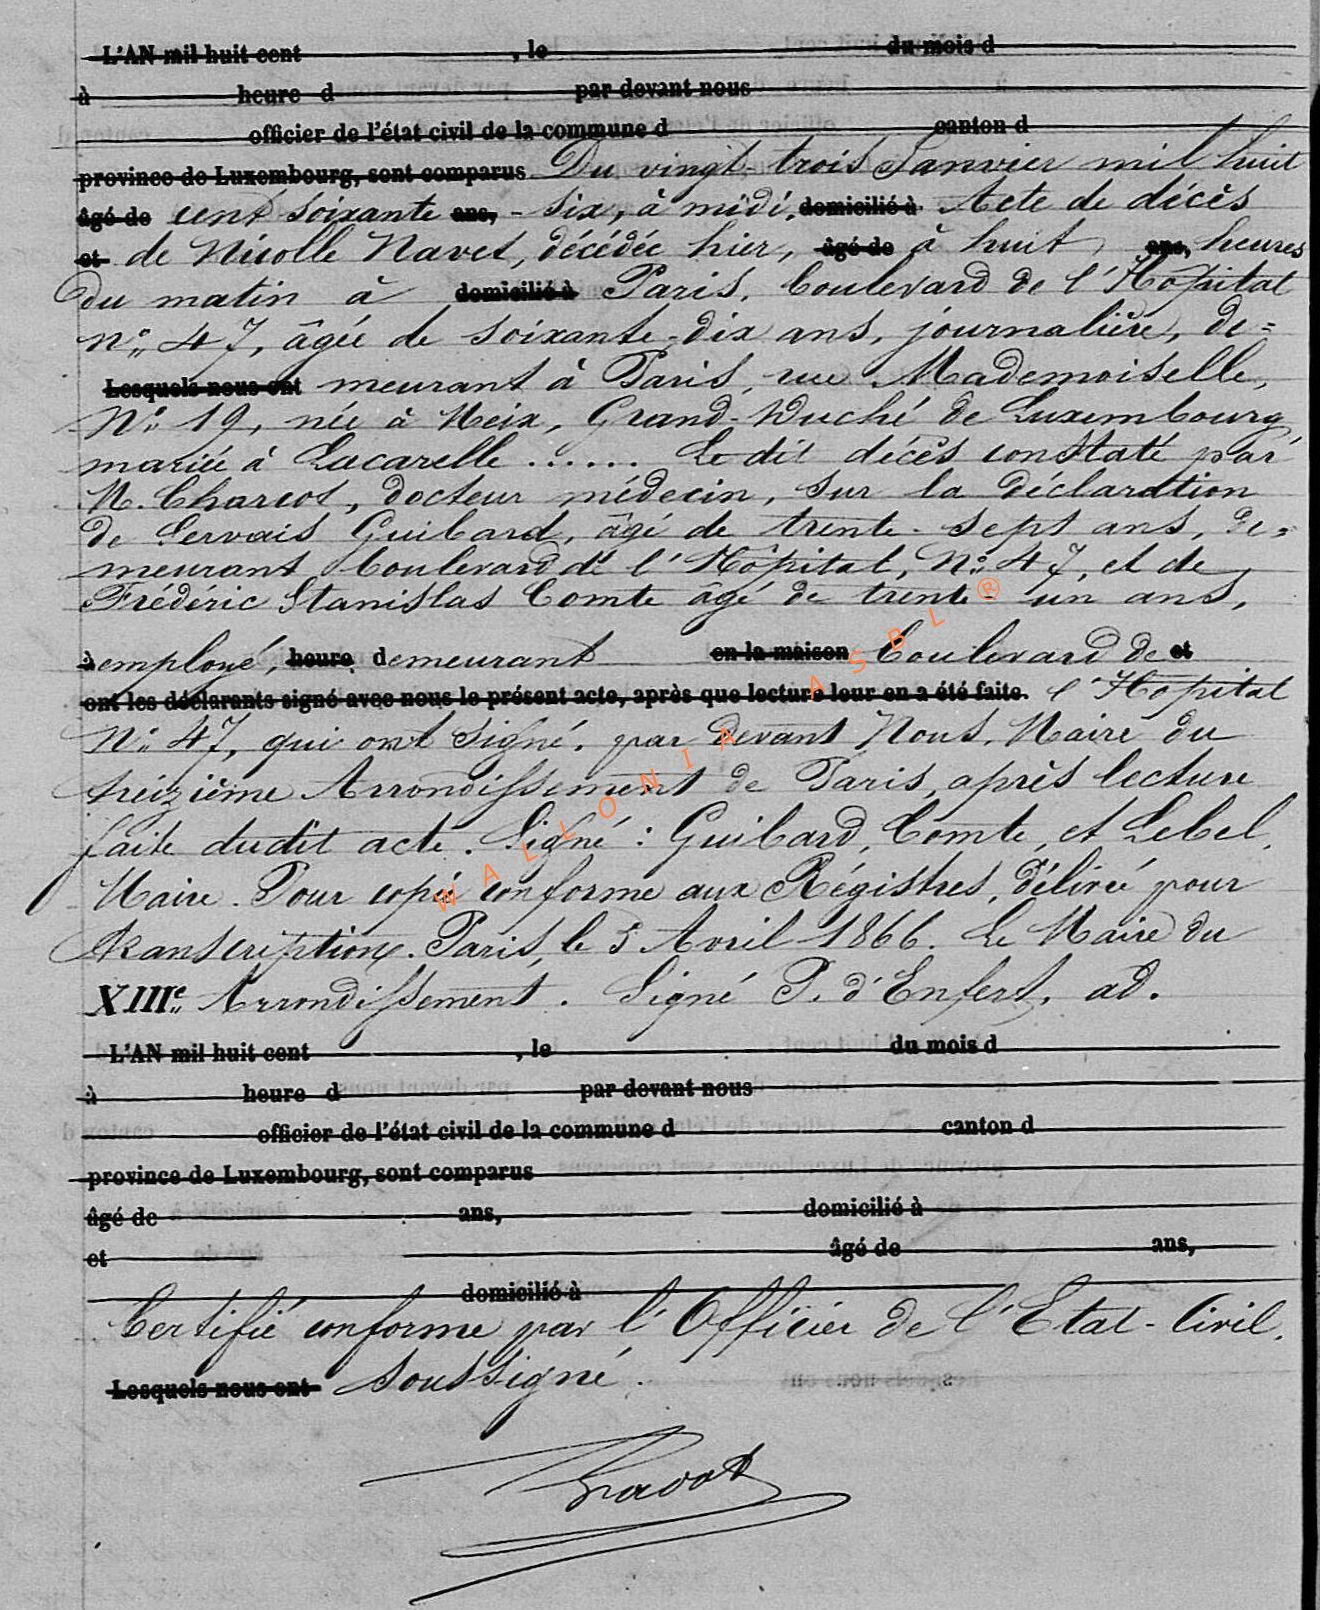 L'AN mil huit cent , le du mois d
à heure d par devant nous
officier de l'état civil de la commune d canton d
province de Luxembourg, sont comparus Du vingt-trois Janvier mil huit
âgé de cent soixante ans, - six, à midi, domicilié à Acte de décès
et de Nicolle Navet, décédée hier, âgé de à huit ans, heures
du matin à domicilié à Paris, boulevard de l'Hôpital
N° 47, âgée de soixante-dix ans, journalière, de=
Lesquels nous ont meurant à Paris, rue Mademoiselle,
N° 19, née à Meix, Grand-Duché de Luxembourg
mariée à Lacarelle ...... Le dit décès constaté par
M. Charcot, docteur médecin, sur la déclaration
de Servais Guibard, âgé de trente-sept ans, de=
meurant boulevard de l'Hôpital, N° 47, et de
Frédéric Stanislas Comte âgé de trente-un ans,
à employé, heure demeurant en la maison boulevard de et
ont les déclarants signé avec nous le présent acte, après que lecture leur en a été faite. l'Hôpital
N° 47, qui ont signé, par devant Nous, Maire du
treizième Arrondissement de Paris, après lecture
faite dudit acte. Signé : Guibard, Comte, et Lebel,
Maire. Pour copie conforme aux Régistres, délivré pour
transcription. Paris, le 5 Avril 1866. Le Maire du
XIIIe Arrondissement. Signé P. d'Enfert, ad.
WALLONIA ASBL ®
L'AN mil huit cent , le du mois d
à heure d par devant nous
officier de l'état civil de la commune d canton d
province de Luxembourg, sont comparus
âgé de ans, domicilié à
et âgé de ans,
domicilié à
Certifié conforme par l'Officier de l'Etat-Civil,
Lesquels nous ont soussigné.